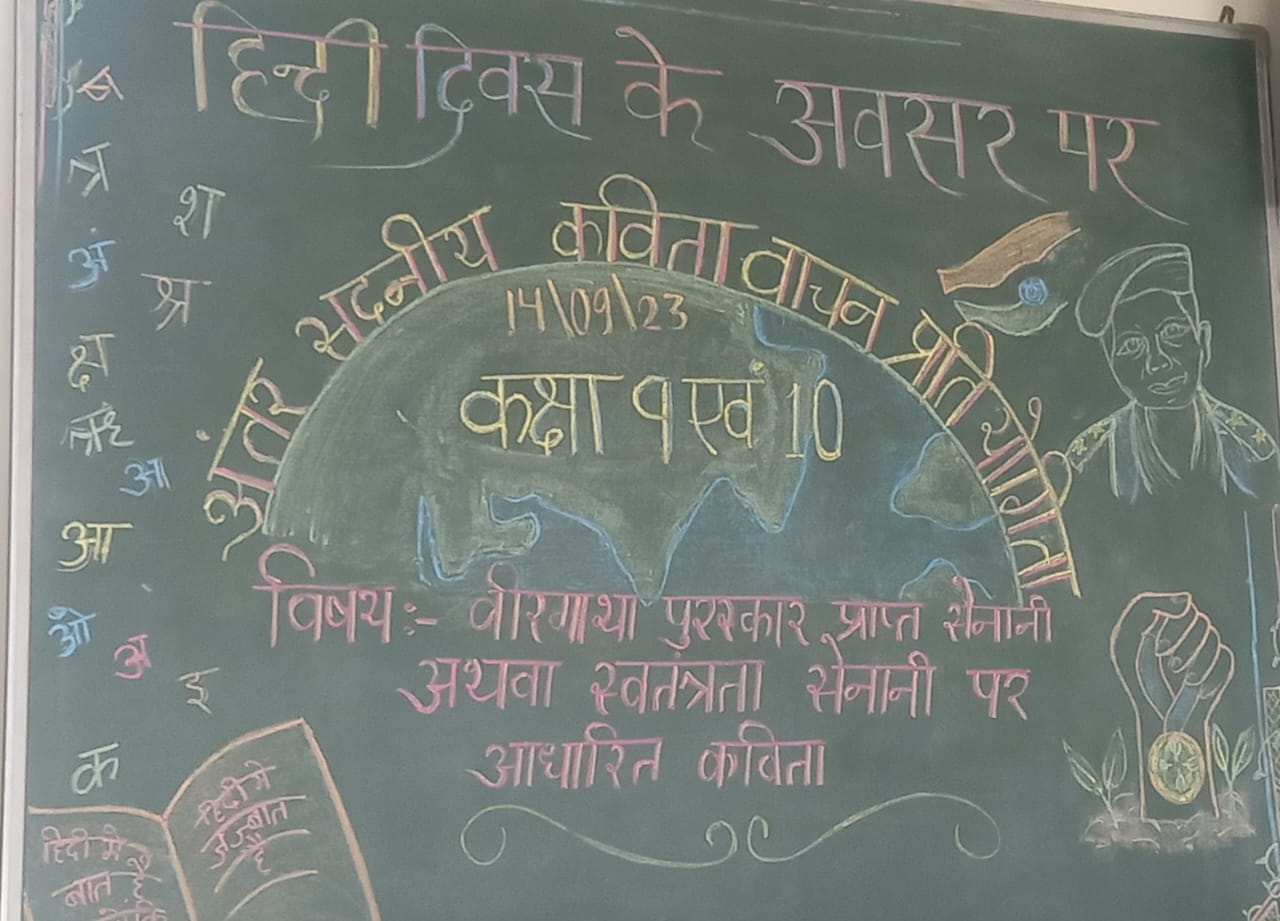 हिन्दी दिवस के अवसर पर
अंतर सदनीय कविता वाचन प्रतियोगिता
14\09\23
कक्षा 9 एवं 10
विषय:- वीरगाथा पुरस्कार प्राप्त सेनानी
अथवा स्वतंत्रता सेनानी पर
आधारित कविता
श
अं
श्र
क्ष
आ
आ
ओ
अ
इ
क
हिंदी में
जज्बात
है
हिंदी में
बात है